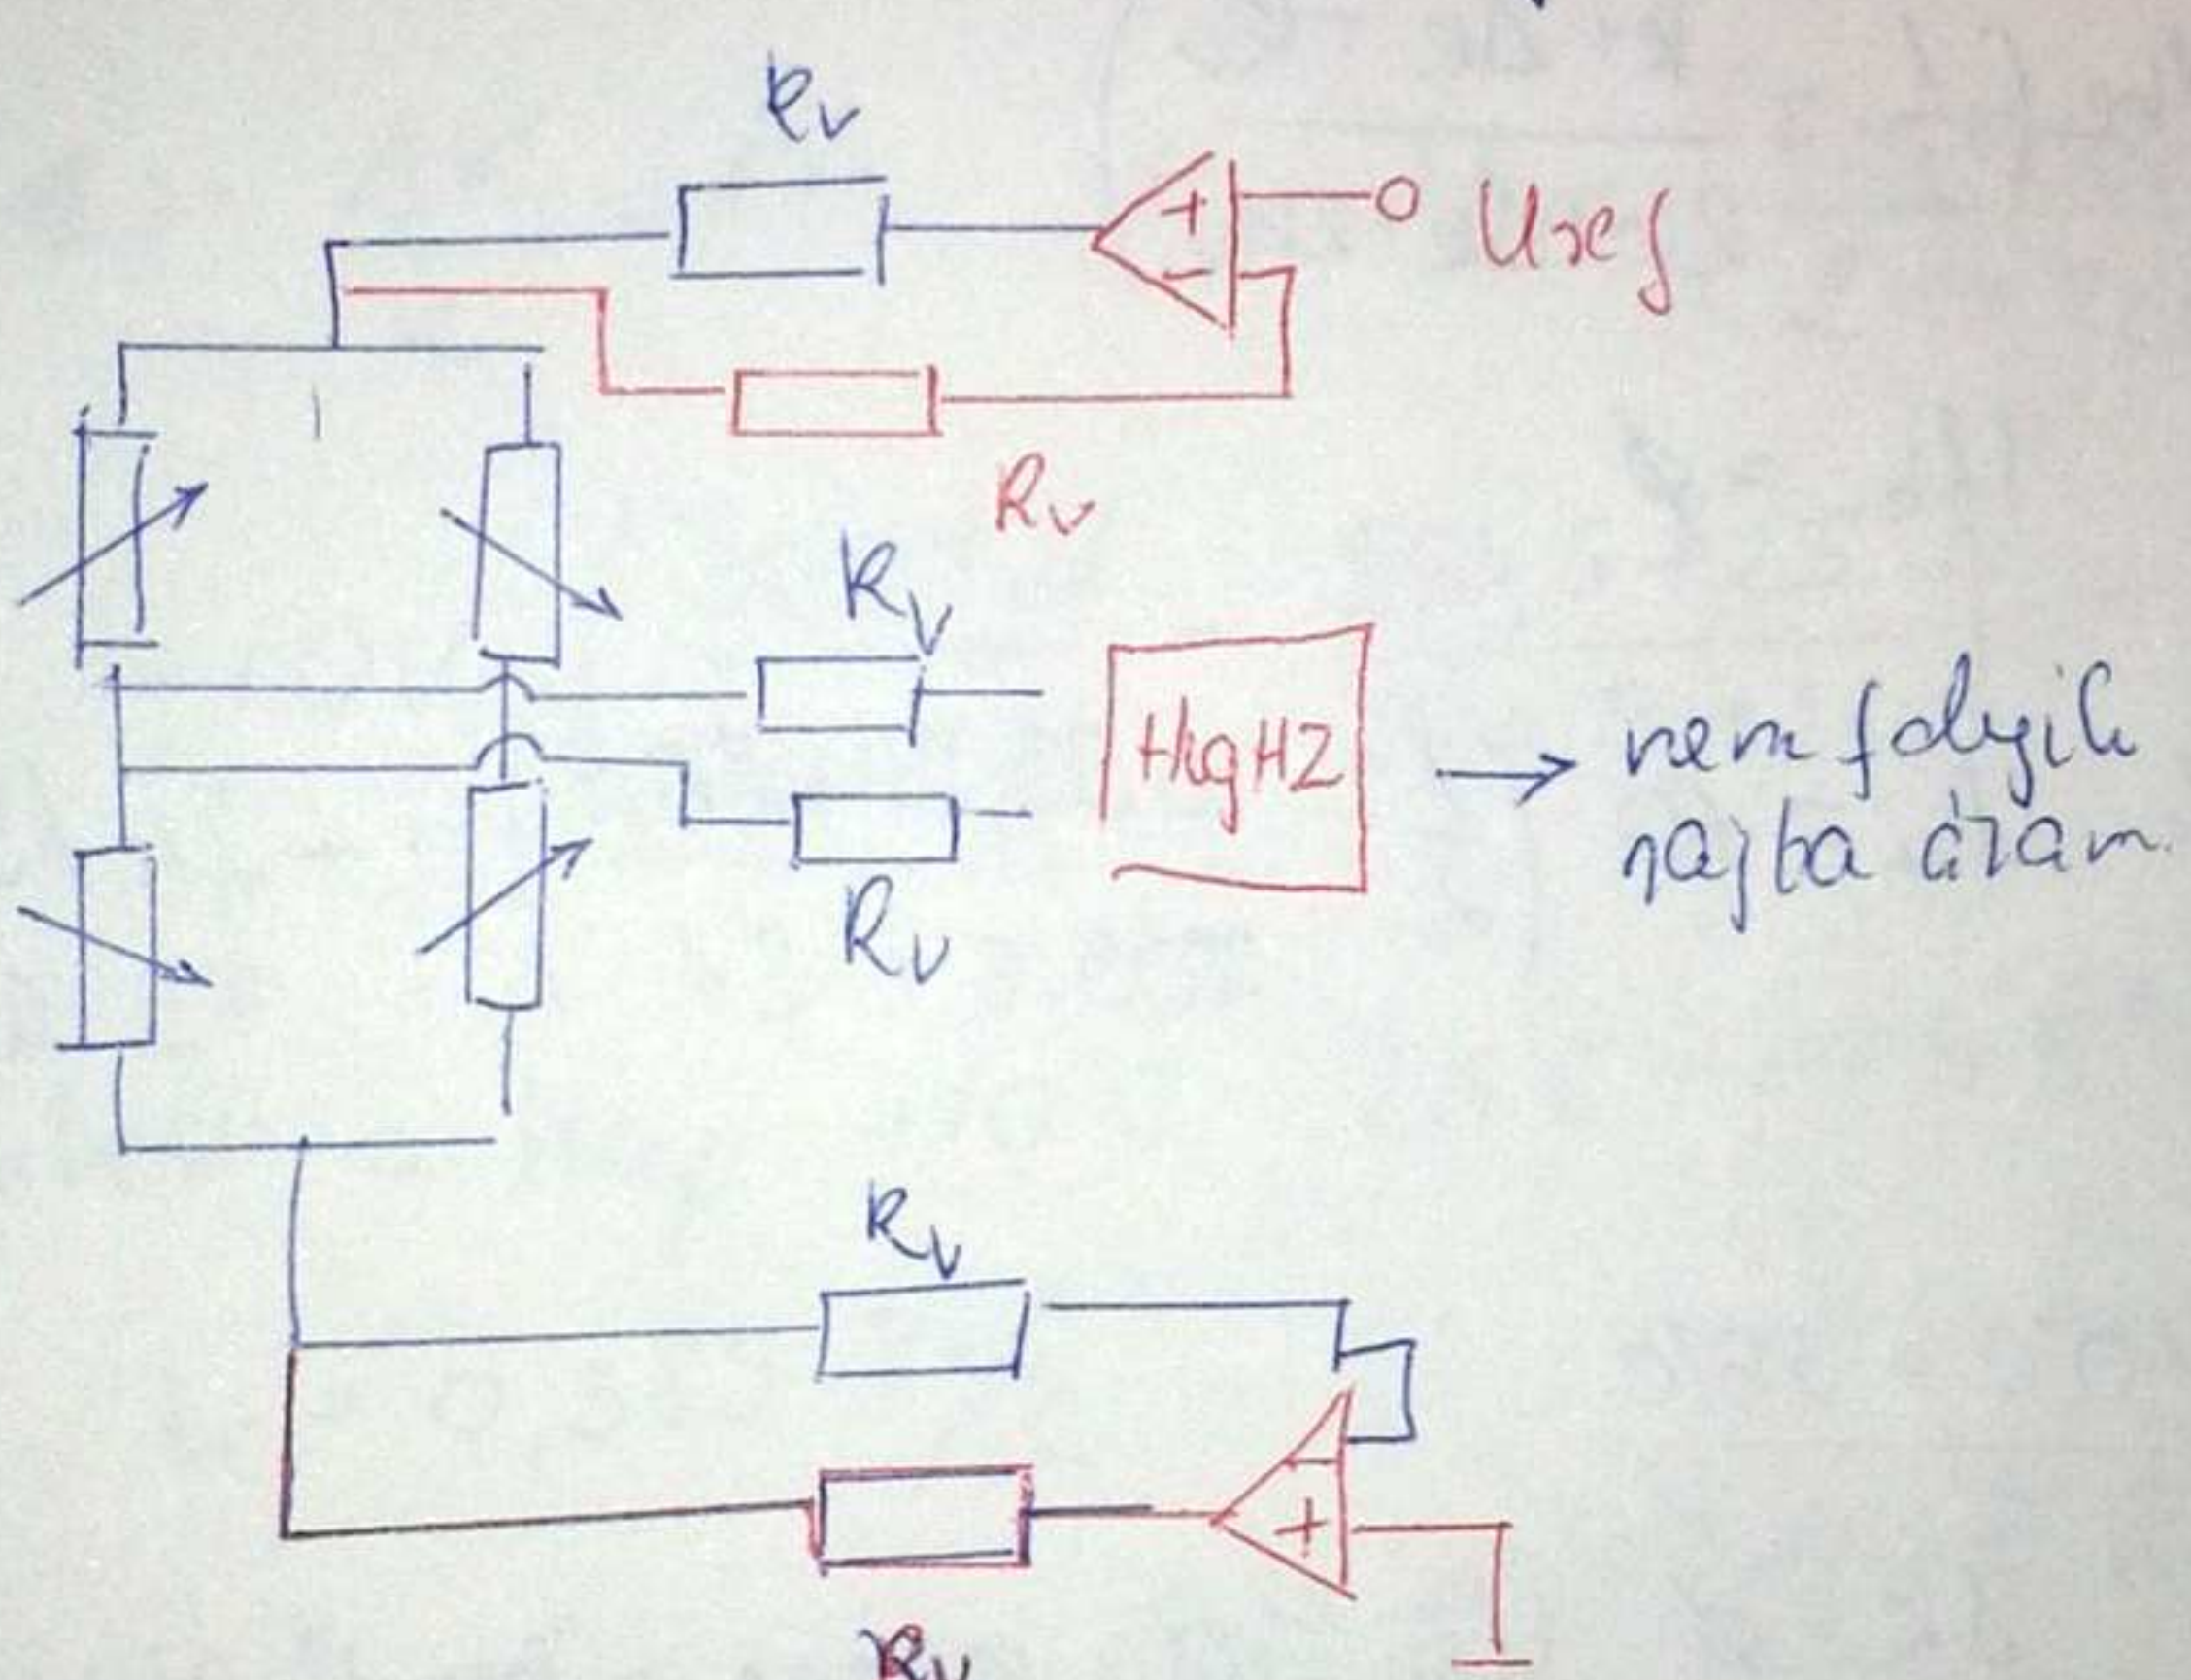 Rv
+
Uref
−
Rv
Rv
HigHZ
→ nem folyik
rajta áram.
Rv
Rv
−
+
Rv